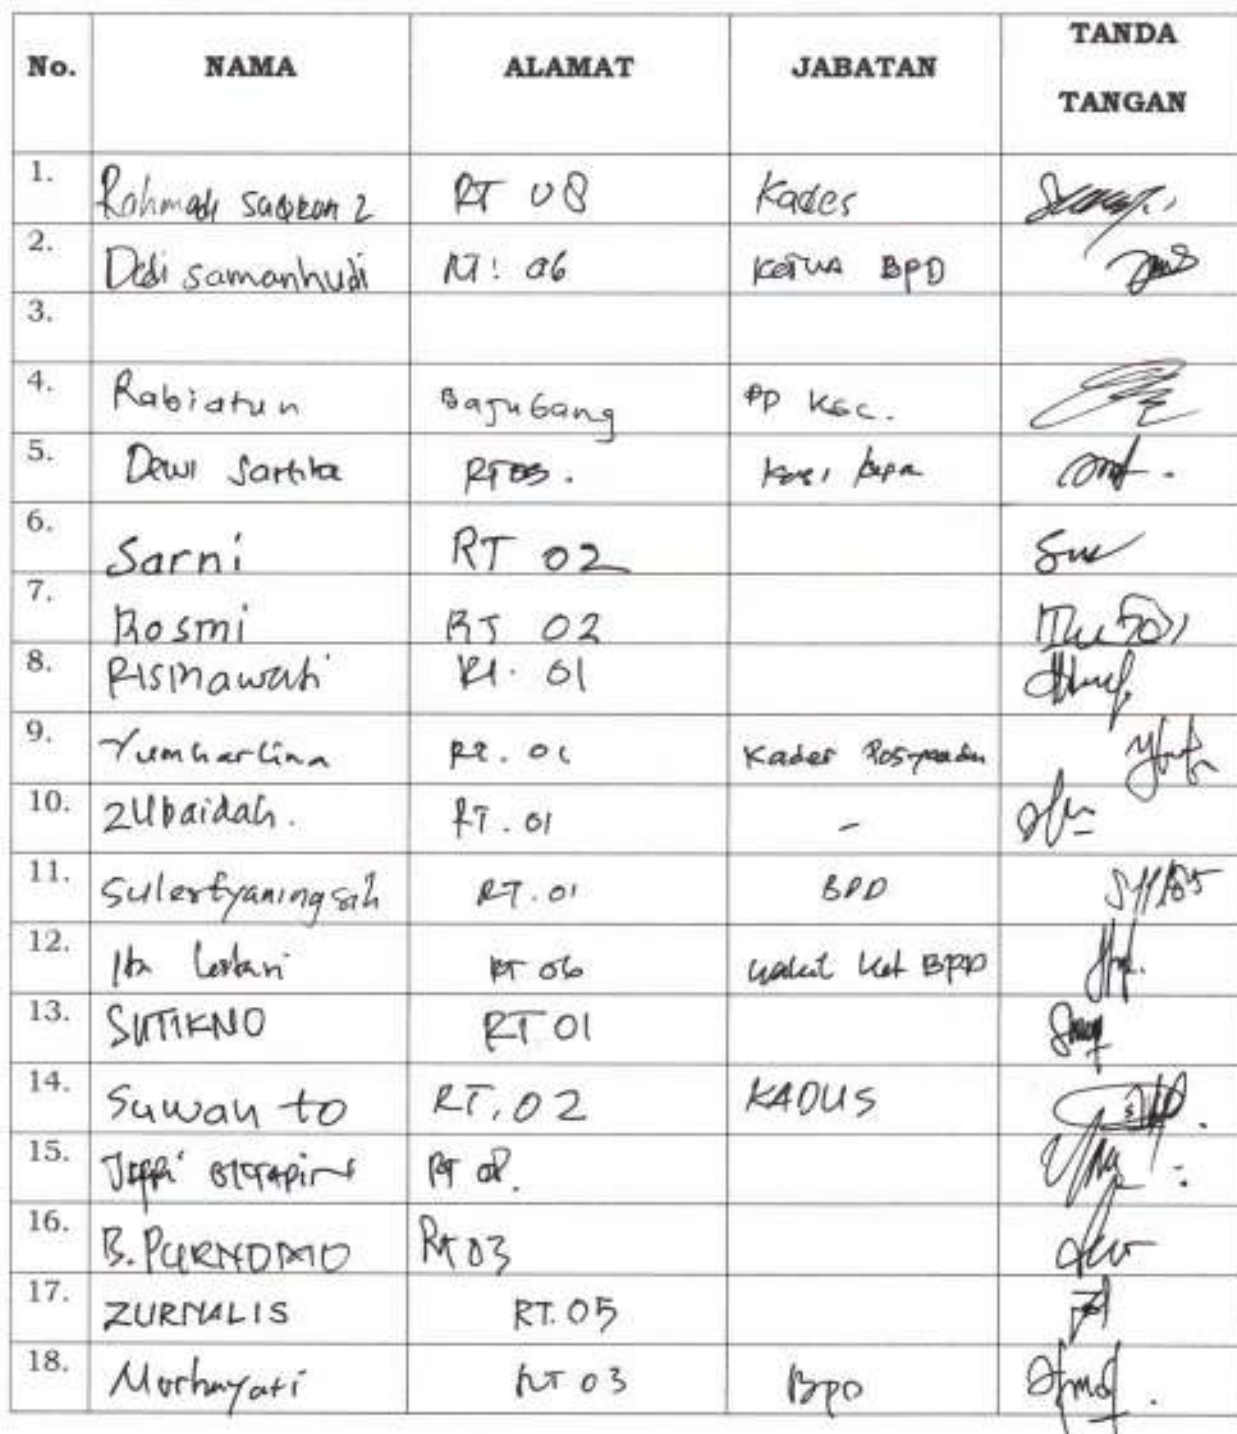 No. NAMA ALAMAT JABATAN TANDA TANGAN
1. RT 08 Kades
2. Dedi samanhudi RT: 06 Ketua BPD
3.
4. Rabiatun Bajubang PP Kec.
5. Dewi Sartika RT 03. Kasi
6. Sarni RT 02
7. Rosmi RT 02
8. Rismawati Rt. 01
9. Yumharlina Rt. 01 Kader Posyandu
10. Zubaidah. RT. 01 -
11. RT. 01 BPD
12. Ita Lestari RT 06 wakil Ket BPD
13. SUTIKNO RT 01
14. Suwanto RT. 02 KADUS
15. RT
16. B. PURNOMO Rt 03
17. ZURNALIS RT. 05
18. RT 03 BPD